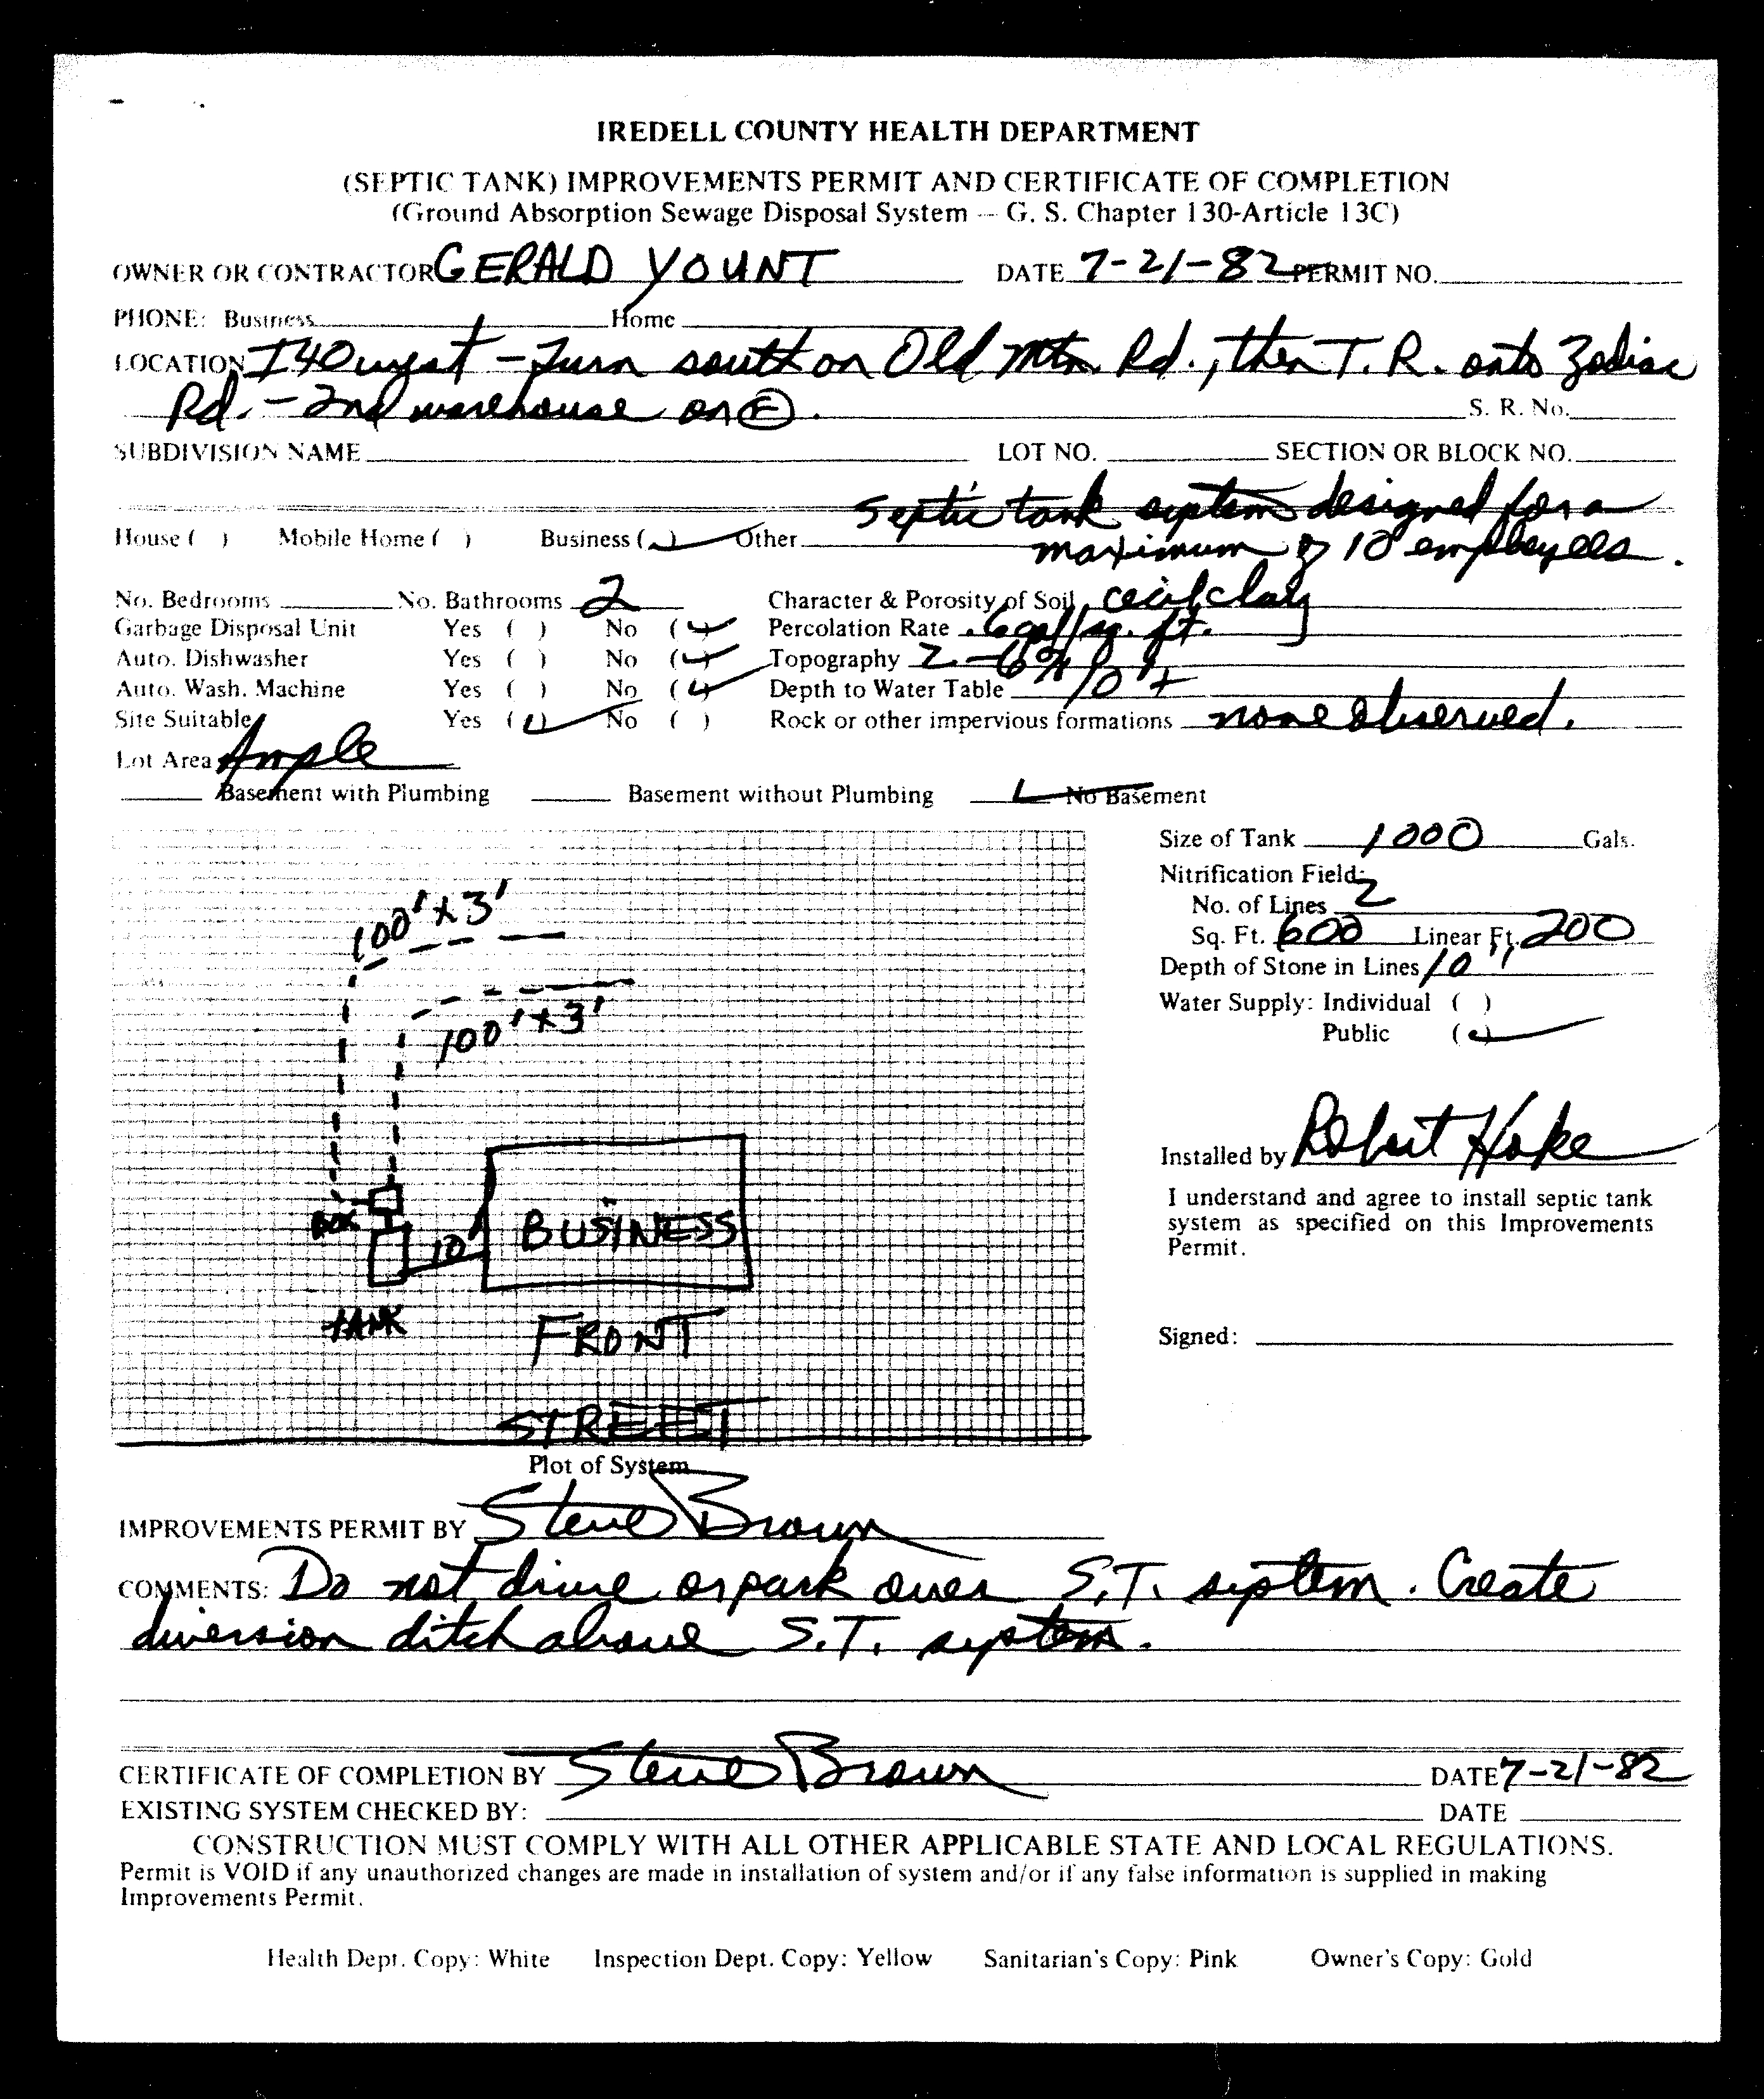 IREDELL COUNTY HEALTH DEPARTMENT
(SEPTIC TANK) IMPROVEMENTS PERMIT AND CERTIFICATE OF COMPLETION
(Ground Absorption Sewage Disposal System — G. S. Chapter 130-Article 13C)
OWNER OR CONTRACTOR GERALD YOUNT DATE 7-21-82 PERMIT NO.
PHONE: Business Home
LOCATION I40 west - Turn south on Old Mtn. Rd., then T. R. onto Zodiac
Rd. - 2nd warehouse on
S. R. No.
SUBDIVISION NAME LOT NO. SECTION OR BLOCK NO.
Septic tank system designed for a
House ( ) Mobile Home ( ) Business (✓) Other maximum of 10 employees.
No. Bedrooms No. Bathrooms 2 Character & Porosity of Soil cecil clay
Garbage Disposal Unit Yes ( ) No (✓) Percolation Rate .6 gal/sq. ft.
Auto. Dishwasher Yes ( ) No (✓) Topography 2-6%
Auto. Wash. Machine Yes ( ) No (✓) Depth to Water Table 10'+
Site Suitable Yes (✓) No ( ) Rock or other impervious formations none observed.
Lot Area Ample
Basement with Plumbing Basement without Plumbing ✓ No Basement
Size of Tank 1000 Gals.
Nitrification Field:
No. of Lines 2
Sq. Ft. 600 Linear Ft. 200
Depth of Stone in Lines 10"
Water Supply: Individual ( )
Public (✓)
Installed by Robert Hoke
I understand and agree to install septic tank
system as specified on this Improvements
Permit.
Signed:
100' x 3'
100' x 3'
BOX
10'
BUSINESS
TANK
FRONT
STREET
Plot of System
IMPROVEMENTS PERMIT BY Steve Brown
COMMENTS: Do not drive or park over S.T. system. Create
diversion ditch above S.T. system.
CERTIFICATE OF COMPLETION BY Steve Brown DATE 7-21-82
EXISTING SYSTEM CHECKED BY: DATE
CONSTRUCTION MUST COMPLY WITH ALL OTHER APPLICABLE STATE AND LOCAL REGULATIONS.
Permit is VOID if any unauthorized changes are made in installation of system and/or if any false information is supplied in making
Improvements Permit.
Health Dept. Copy: White Inspection Dept. Copy: Yellow Sanitarian's Copy: Pink Owner's Copy: Gold